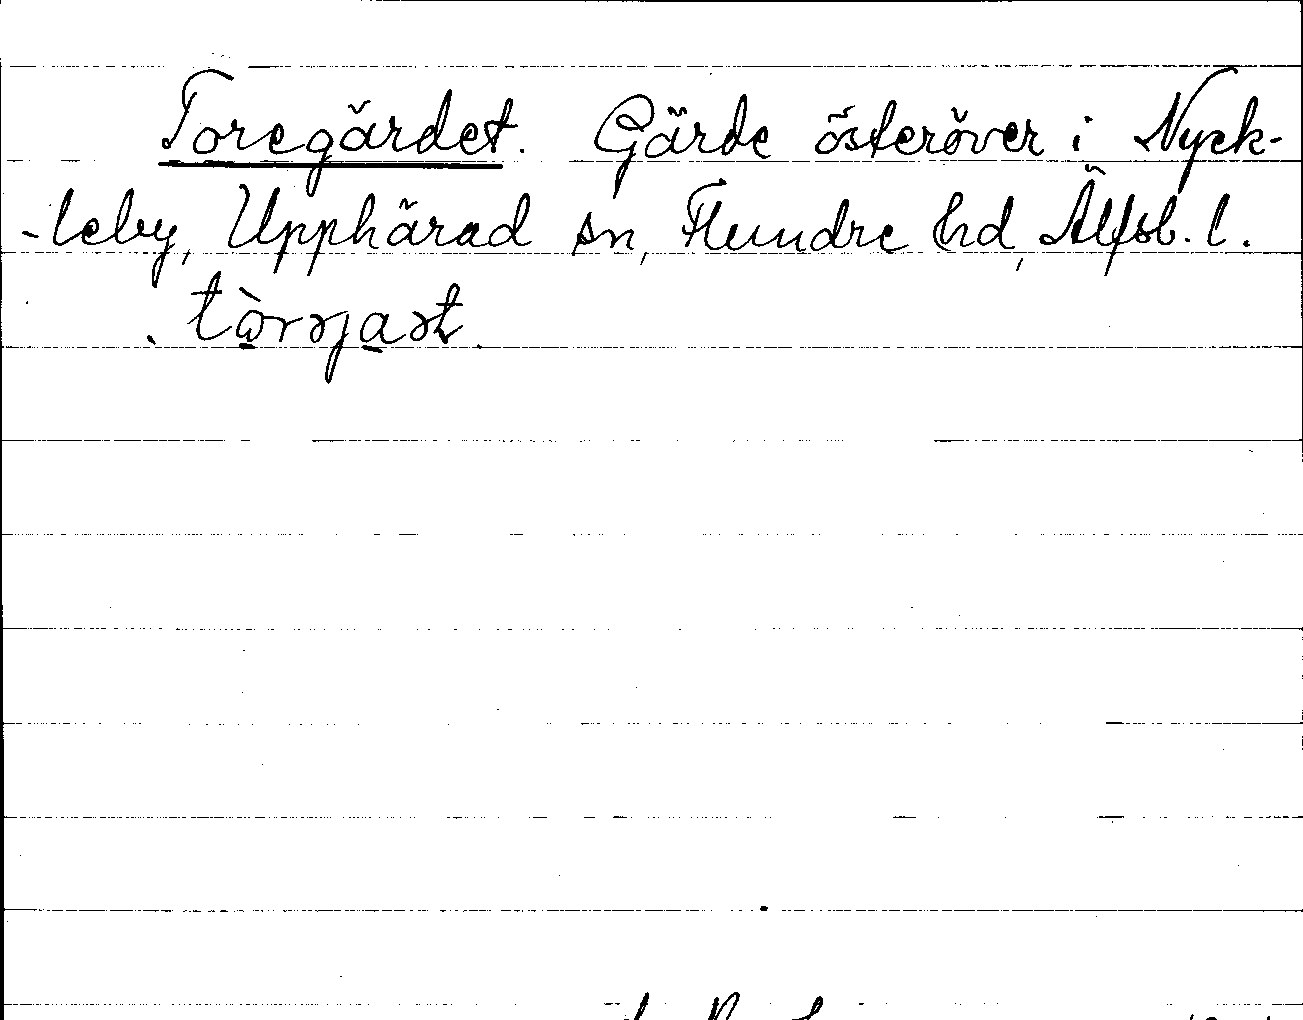 Toregärdet. Gärde österöver i Nyck-
-leby, Upphärad sn, Flundre hd, Älfsb. l.